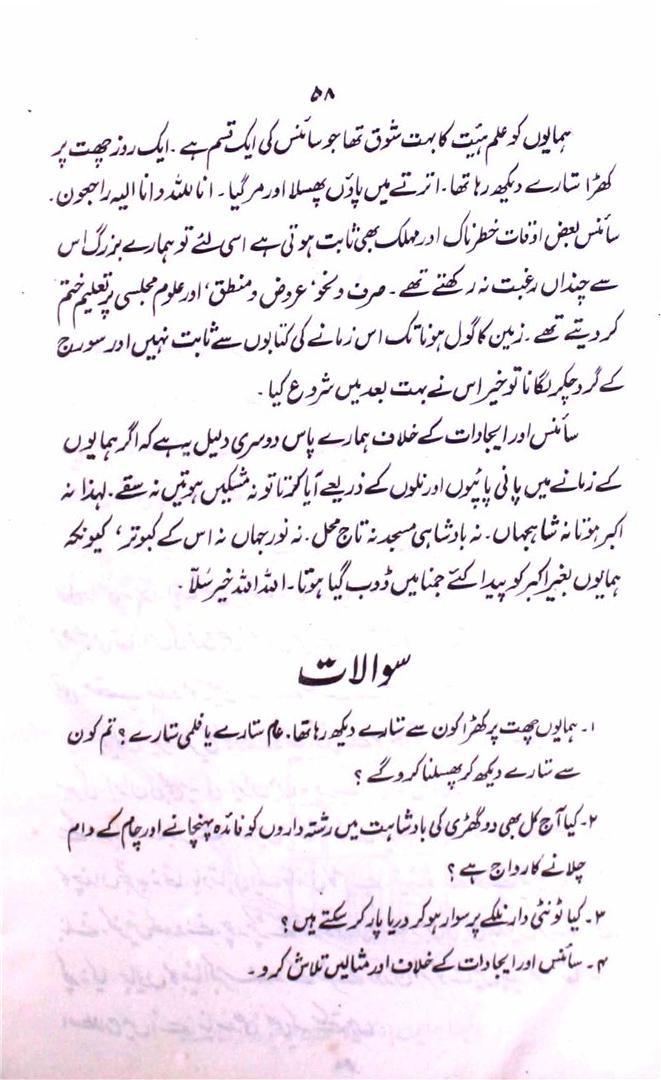 ۵۸
ہمایوں کو علم ہئیت کا بہت شوق تھا جو سائنس کی ایک قسم ہے ۔ ایک روز چھت پر
کھڑا ستارے دیکھ رہا تھا۔ اترتے میں پاؤں پھسلا اور مر گیا۔ انا للہ و انا الیہ راجعون۔
سائنس بعض اوقات خطرناک اور مہلک بھی ثابت ہوتی ہے اسی لئے تو ہمارے بزرگ اس
سے چنداں رغبت نہ رکھتے تھے ۔ صرف و نحو ، عروض و منطق ، اور علوم مجلسی پر تعلیم ختم
کر دیتے تھے ۔ زمین کا گول ہونا تک اس زمانے کی کتابوں سے ثابت نہیں اور سورج
کے گرد چکر لگانا تو خیر اس نے بہت بعد میں شروع کیا ۔
سائنس اور ایجادات کے خلاف ہمارے پاس دوسری دلیل یہ ہے کہ اگر ہمایوں
کے زمانے میں پانی پائپوں اور نلوں کے ذریعے آیا کرتا تو نہ مشکیں ہوتیں نہ سقے ۔ لہذا نہ
اکبر ہوتا نہ شاہجہاں ۔ نہ بادشاہی مسجد نہ تاج محل ۔ نہ نورجہاں نہ اس کے کبوتر ، کیونکہ
ہمایوں بغیر اکبر کو پیدا کئے جمنا میں ڈوب گیا ہوتا ۔ اللہ اللہ خیر سلّا ۔
سوالات
۱۔ ہمایوں چھت پر کھڑا کون سے ستارے دیکھ رہا تھا ۔ عام ستارے یا فلمی ستارے ؟ تم کون
سے ستارے دیکھ کر پھسلنا کرو گے ؟
۲۔ کیا آج کل بھی دو گھڑی کی بادشاہت میں رشتہ داروں کو فائدہ پہنچانے اور چام کے دام
چلانے کا رواج ہے ؟
۳۔ کیا ٹونٹی دار نلکے پر سوار ہو کر دریا پار کر سکتے ہیں ؟
۴۔ سائنس اور ایجادات کے خلاف اور مثالیں تلاش کرو ۔